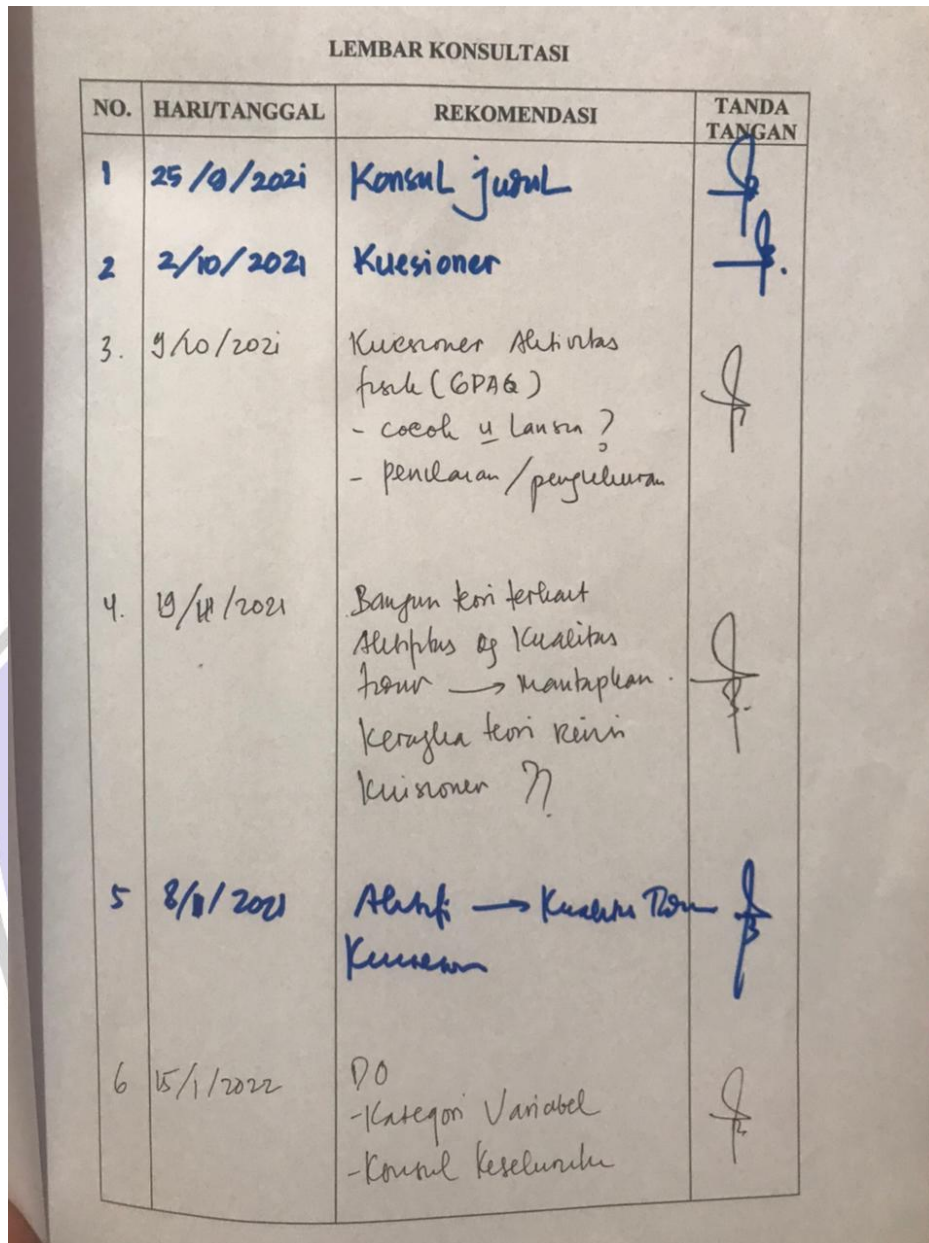 LEMBAR KONSULTASI
NO. HARI/TANGGAL REKOMENDASI TANDA TANGAN
1 25/9/2021 Konsul judul
2 2/10/2021 Kuesioner
3. 9/10/2021 Kuesioner Aktivitas
fisik (GPAQ)
- cocok u Lansia ?
- penilaian / pengukuran
4. 19/ /2021 Bangun teori terkait
Aktifitas dg Kualitas
tidur → Mantapkan.
Kerangka teori Revisi
Kuisioner ??
5 8/ /2021 Aktifi → Kualitas Tidur
Kuesioner
6 15/1/2022 DO
-Kategori Variabel
-Konsul Keseluruhan